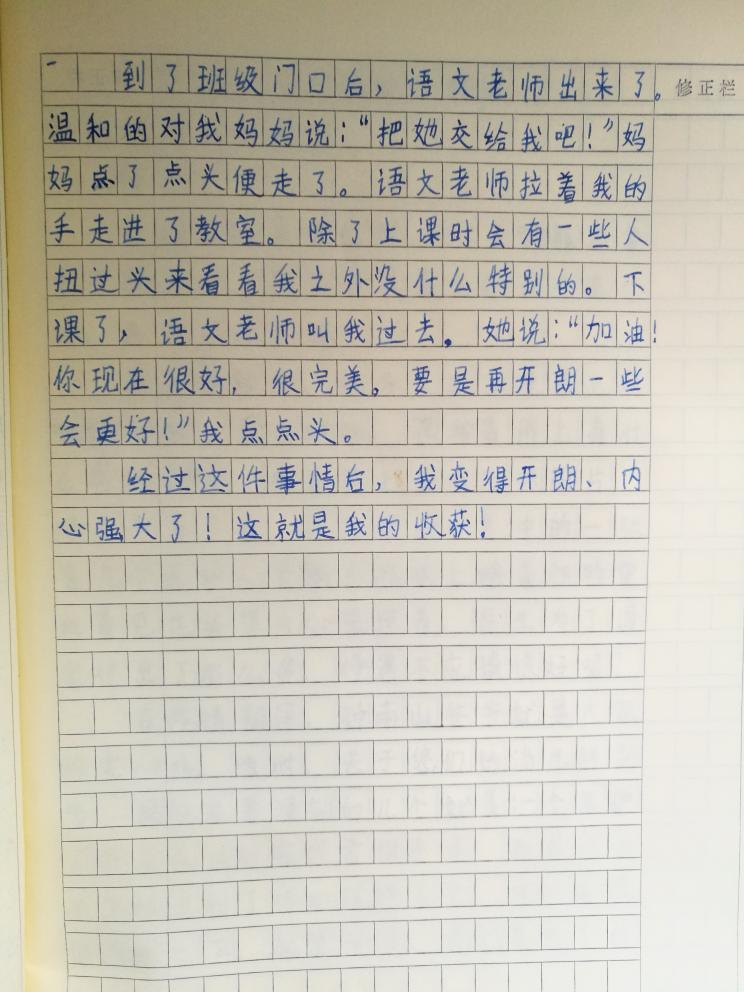 到了班级门口后，语文老师出来了。
修正栏
温和的对我妈妈说：“把她交给我吧！”妈
妈点了点头便走了。语文老师拉着我的
手走进了教室。除了上课时会有一些人
扭过头来看看我之外没什么特别的。下
课了，语文老师叫我过去。她说：“加油！
你现在很好，很完美。要是再开朗一些
会更好！”我点点头。
经过这件事情后，我变得开朗、内
心强大了！这就是我的收获！